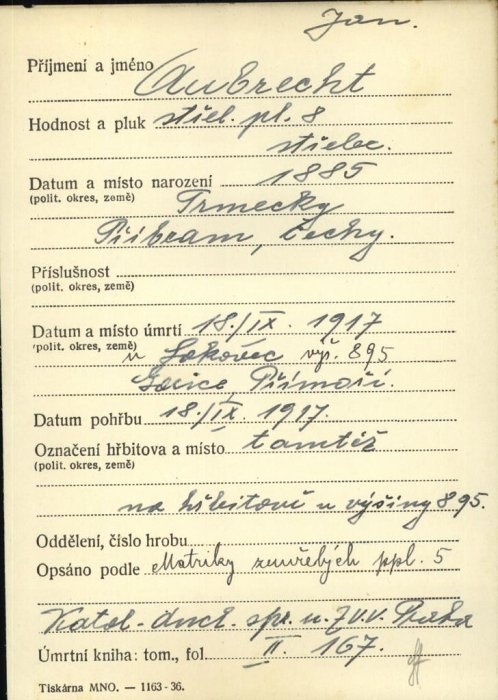 Jan.
Příjmení a jméno Aubrecht
Hodnost a pluk střel. pl. 8
střelec.
Datum a místo narození 1885
(polit. okres, země) Trmecky
Příbram, Čechy.
Příslušnost
(polit. okres, země)
Datum a místo úmrtí 18./IX. 1917
(polit. okres, země) u výš. 895
Gorice, Přímoří.
Datum pohřbu 18./IX. 1917.
Označení hřbitova a místo tamtéž
(polit. okres, země)
na hřbitově u výšiny 895.
Oddělení, číslo hrobu
Opsáno podle Matriky zemřelých ppl. 5
Katol. duch. spr. u Z.V.V. Praha
Úmrtní kniha: tom., fol. II. 167.
Tiskárna MNO. — 1163-36.